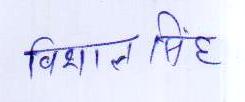 विशाल सिंह